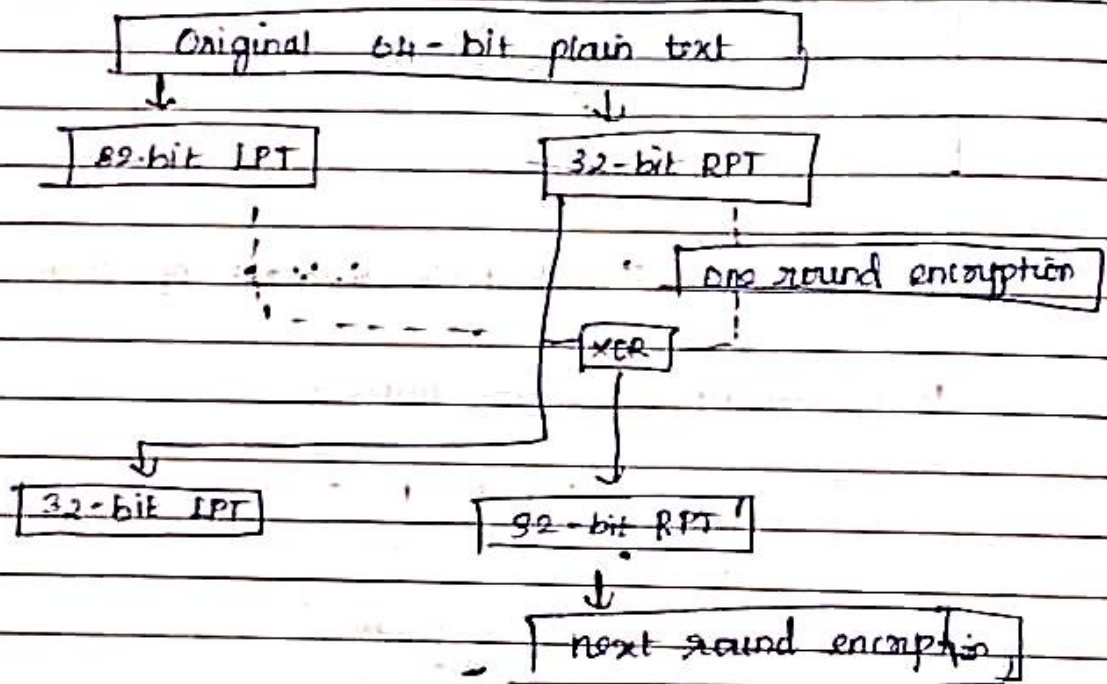 Original 64-bit plain text
32-bit LPT 32-bit RPT
one round encryption
XOR
32-bit LPT 32-bit RPT'
next round encrption